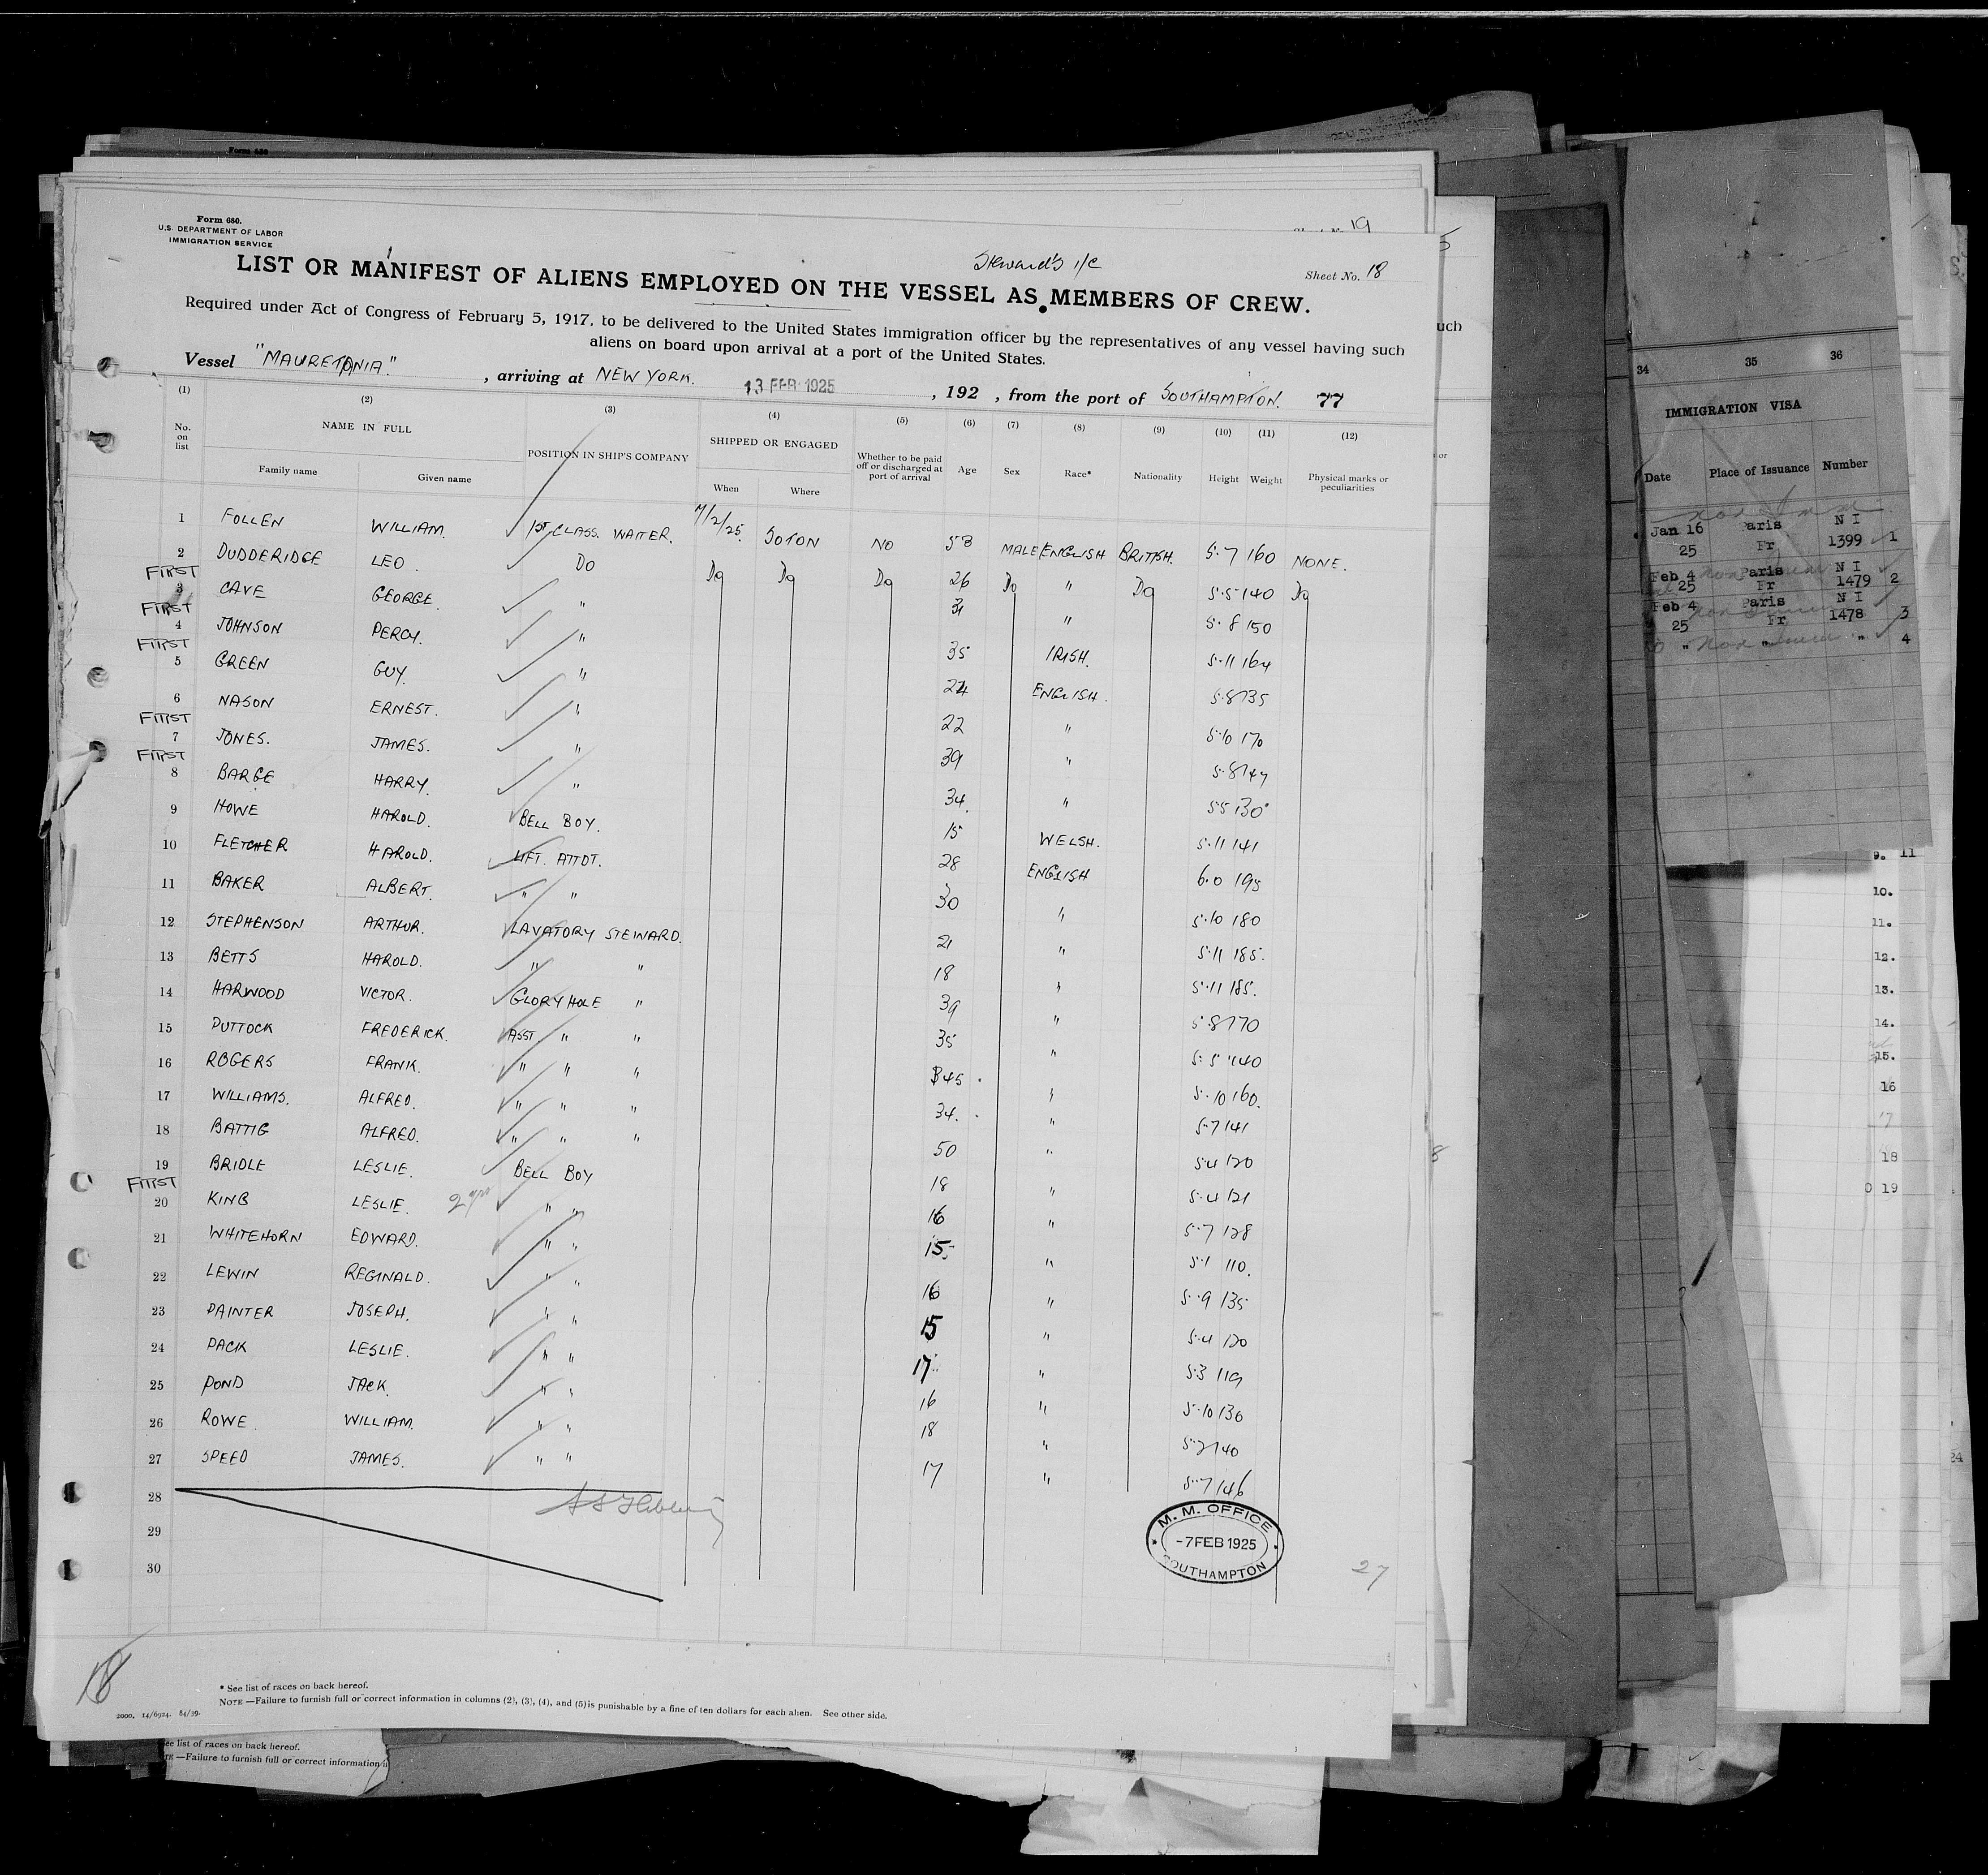 Form 680.
U.S. DEPARTMENT OF LABOR
IMMIGRATION SERVICE
19
Steward's
Sheet No. 18
LIST OR MANIFEST OF ALIENS EMPLOYED ON THE VESSEL AS MEMBERS OF CREW.
Required under Act of Congress of February 5, 1917, to be delivered to the United States immigration officer by the representatives of any vessel having such
aliens on board upon arrival at a port of the United States.
Vessel "MAURETANIA." , arriving at NEW YORK. 13 FEB 1925 , 192 , from the port of SOUTHAMPTON. 77
(1) (2) (3) (4) (5) (6) (7) (8) (9) (10) (11) (12)
No. on list NAME IN FULL POSITION IN SHIP'S COMPANY SHIPPED OR ENGAGED Whether to be paid off or discharged at port of arrival Age Sex Race* Nationality Height Weight Physical marks or peculiarities
Family name Given name When Where
1 FOLLEN WILLIAM. 1ST CLASS. WAITER. 7/2/25. SOTON NO 58 MALE ENGLISH BRITISH. 5.7 160 NONE.
2 DUDDERIDGE LEO. DO Do Do Do 26 Do " Do 5.5 140 Do
FIRST
3 CAVE GEORGE. " 31 " 5.8 150
FIRST
4 JOHNSON PERCY. " 35 IRISH. 5.11 164
FIRST
5 GREEN GUY. " 24 ENGLISH. 5.8 135
6 NASON ERNEST. " 22 " 5.10 170
FIRST
7 JONES. JAMES. " 39 " 5.8 147
FIRST
8 BARGE HARRY. " 34. " 5.5 130
9 HOWE HAROLD. BELL BOY. 15 WELSH. 5.11 141
10 FLETCHER HAROLD. LIFT. ATTDT. 28 ENGLISH 6.0 195
11 BAKER ALBERT. " " 30 " 5.10 180
12 STEPHENSON ARTHUR. LAVATORY STEWARD. 21 " 5.11 185.
13 BETTS HAROLD. " " 18 " 5.11 185.
14 HARWOOD VICTOR. GLORY HOLE " 39 " 5.8 170
15 PUTTOCK FREDERICK. ASST. " " 35 " 5.5 140
16 ROGERS FRANK. " " " 45 " 5.10 160.
17 WILLIAMS. ALFRED. " " " 34. " 5.7 141
18 BATTIG ALFRED. " " " 50 " 5.4 120
19 BRIDLE LESLIE. BELL BOY 18 " 5.4 121
FIRST
20 KING LESLIE. " " 16 " 5.7 128
21 WHITEHORN EDWARD. " " 15 " 5.1 110.
22 LEWIN REGINALD. " " 16 " 5.9 135
23 PAINTER JOSEPH. " " 15 " 5.4 120
24 PACK LESLIE. " " 17 " 5.3 119
25 POND JACK. " " 16 " 5.10 136
26 ROWE. WILLIAM. " " 18 " 5.7 140
27 SPEED JAMES. " " 17 " 5.7 146
28
29
30
M. M. OFFICE
-7 FEB 1925
SOUTHAMPTON
27
18
* See list of races on back hereof.
NOTE —Failure to furnish full or correct information in columns (2), (3), (4), and (5) is punishable by a fine of ten dollars for each alien. See other side.
2000. 14/6924. 84/39.
see list of races on back hereof.
—Failure to furnish full or correct information
uch
or
34 35 36
IMMIGRATION VISA
Date Place of Issuance Number
Jan 16 Paris N I
25 Fr 1399 1
Feb 4 Paris N I
25 Fr 1479 2
Feb 4 Paris N I
25 Fr 1478 3
" " " 4
9. 11
10.
11.
12.
13.
14.
15.
16
17
18
0 19
24